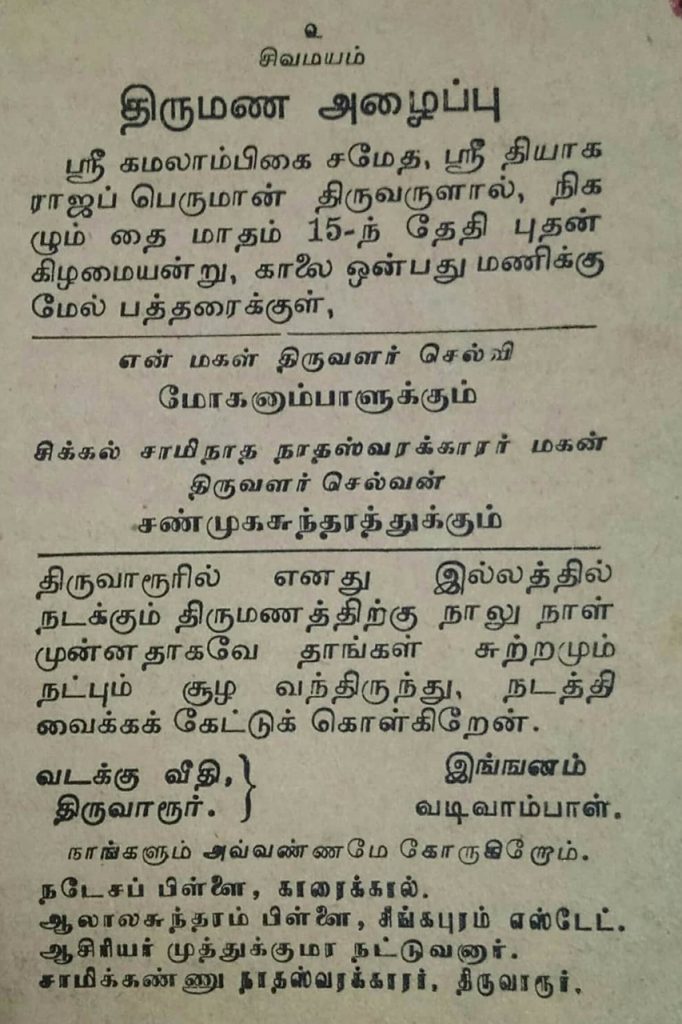 உ
சிவமயம்
திருமண அழைப்பு
ஸ்ரீ கமலாம்பிகை சமேத, ஸ்ரீ தியாக
ராஜப் பெருமான் திருவருளால், நிக
ழும் தை மாதம் 15-ந் தேதி புதன்
கிழமையன்று, காலை ஒன்பது மணிக்கு
மேல் பத்தரைக்குள்,
என் மகள் திருவளர் செல்வி
மோகனாம்பாளுக்கும்
சிக்கல் சாமிநாத நாதஸ்வரக்காரர் மகன்
திருவளர் செல்வன்
சண்முகசுந்தரத்துக்கும்
திருவாரூரில் எனது இல்லத்தில்
நடக்கும் திருமணத்திற்கு நாலு நாள்
முன்னதாகவே தாங்கள் சுற்றமும்
நட்பும் சூழ வந்திருந்து, நடத்தி
வைக்கக் கேட்டுக் கொள்கிறேன்.
வடக்கு வீதி, } இங்ஙனம்
திருவாரூர். வடிவாம்பாள்.
நாங்களும் அவ்வண்ணமே கோருகிறோம்.
நடேசப் பிள்ளை, காரைக்கால்.
ஆலாலசுந்தரம் பிள்ளை, சிங்கபுரம் எஸ்டேட்.
ஆசிரியர் முத்துக்குமர நட்டுவனார்.
சாமிக்கண்ணு நாதஸ்வரக்காரர், திருவாரூர்.